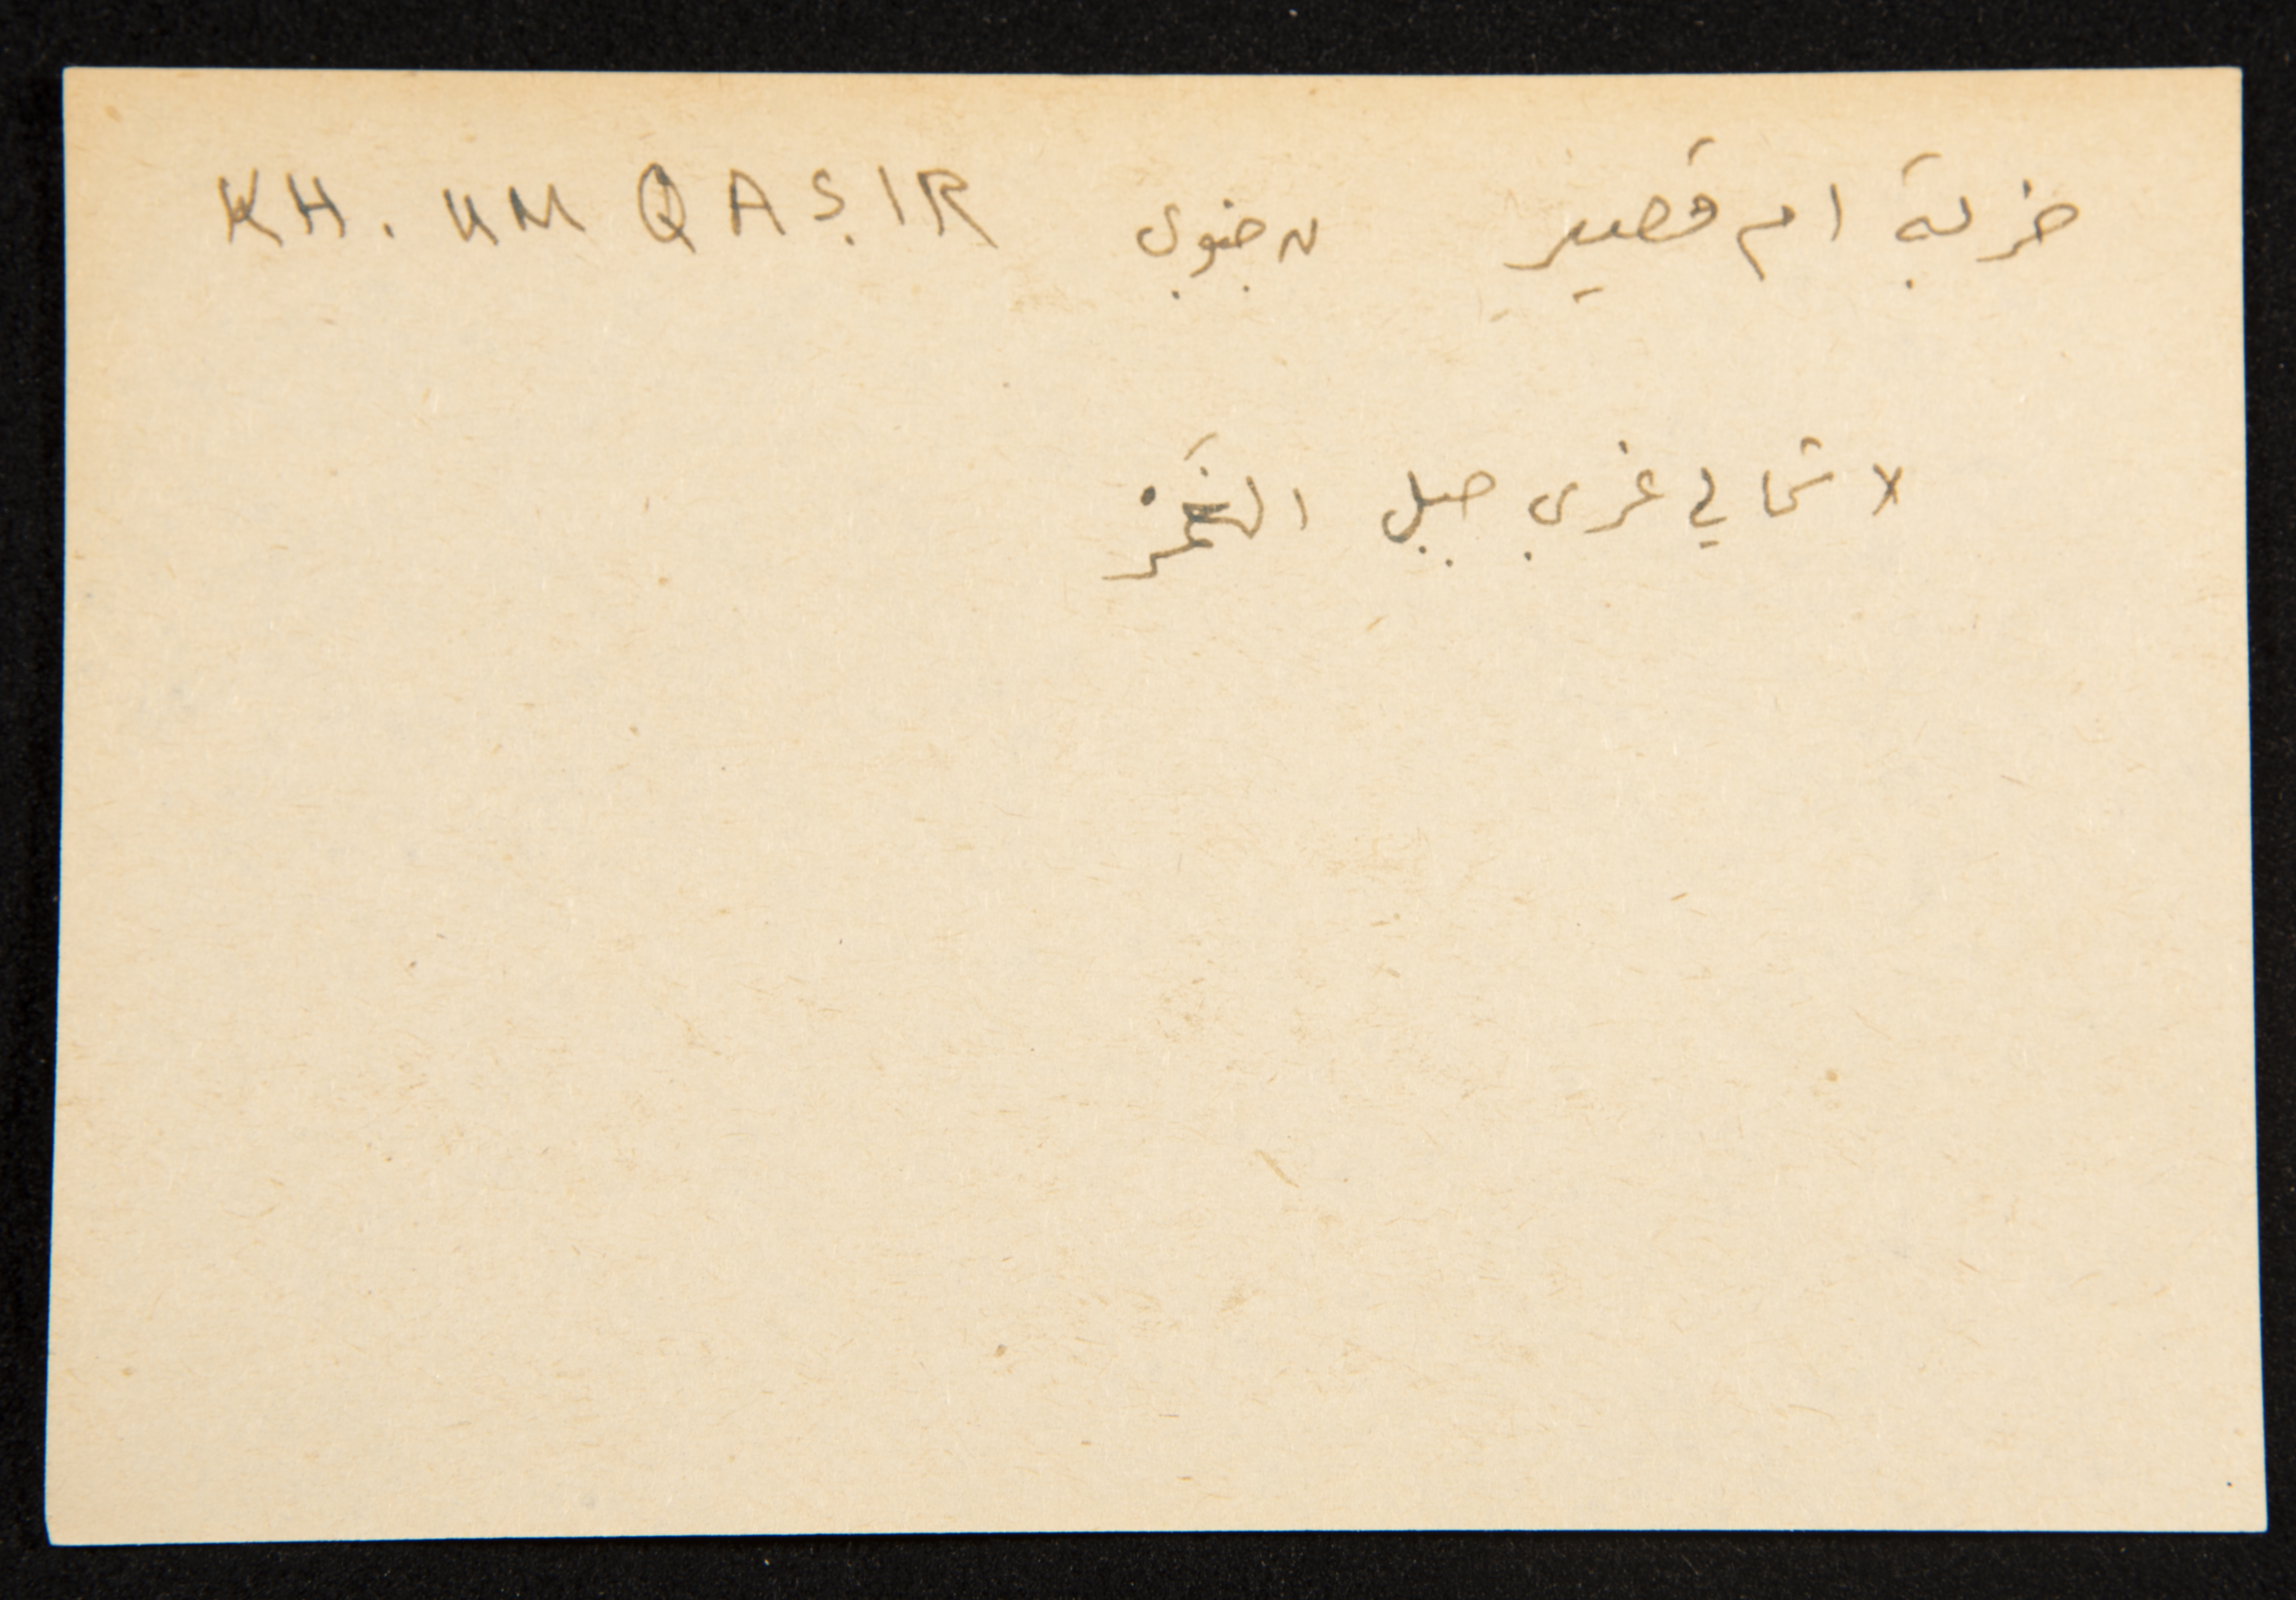 خربة ام قصير ں جنوبي KH. UM QAṢIR
لا شمالي غربي جبل